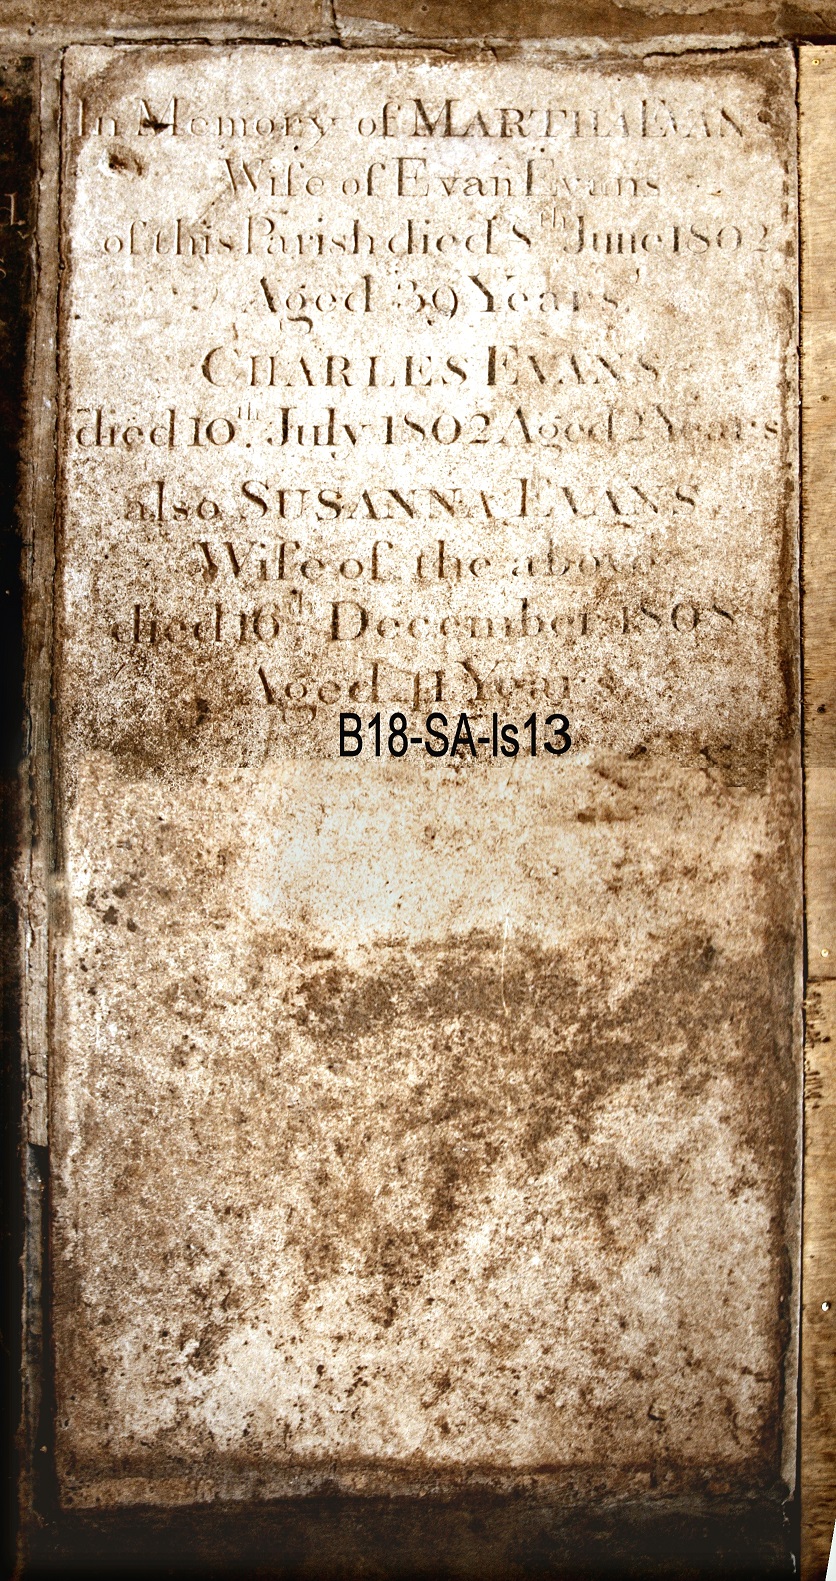 In Memory of MARTHA EVANS
Wife of Evan Evans
of this Parish died 8th June 1802
Aged 39 Years.
CHARLES EVANS
died 10th July 1802 Aged 2 Years
also SUSANNA EVANS.
Wife of the above
died 16th December 1808
Aged 41 Years
B18-SA-ls13